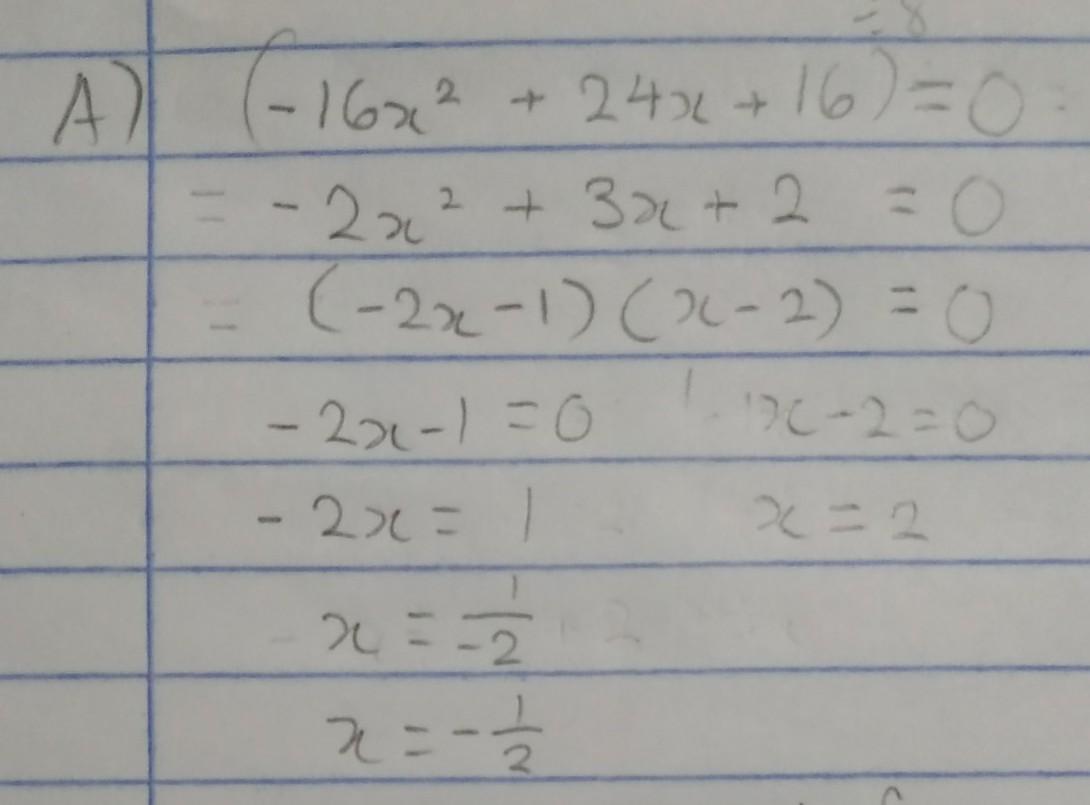 ÷ 8
A) (-16x² + 24x + 16) = 0
= -2x² + 3x + 2 = 0
= (-2x - 1)(x - 2) = 0
-2x - 1 = 0 x - 2 = 0
-2x = 1 x = 2
x = 1/-2
x = -1/2